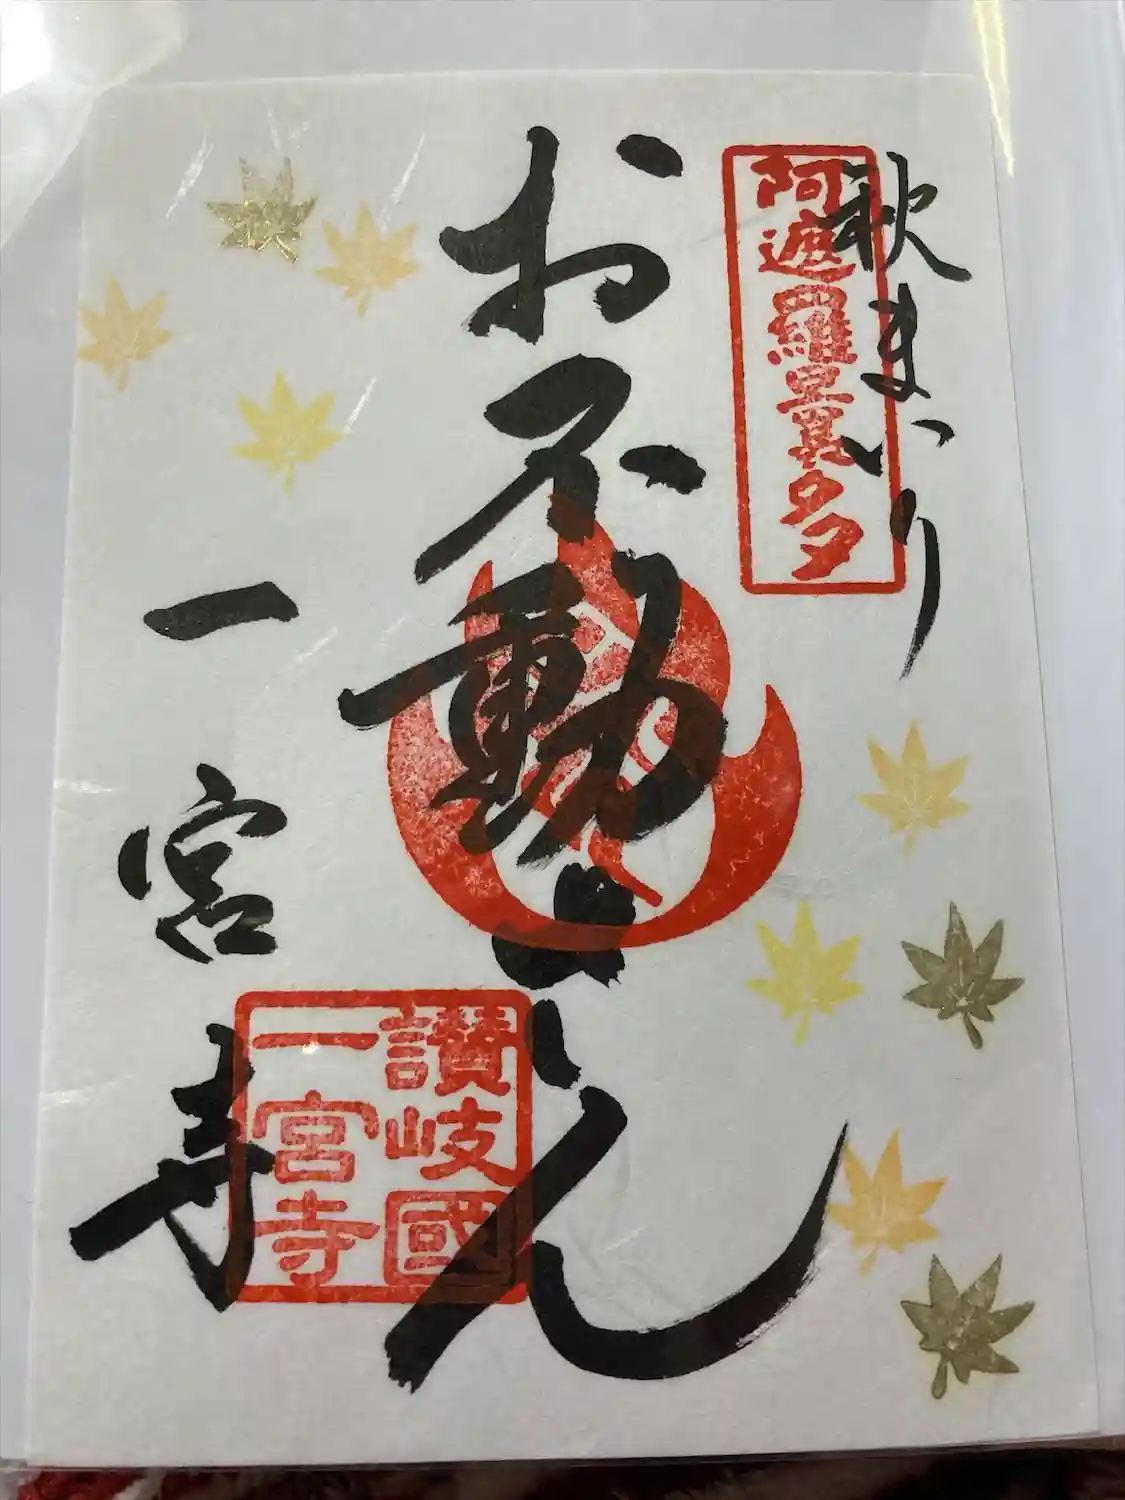 秋まいり
阿遮羅曩多
お不動さん
讃岐國
一宮寺
一宮寺